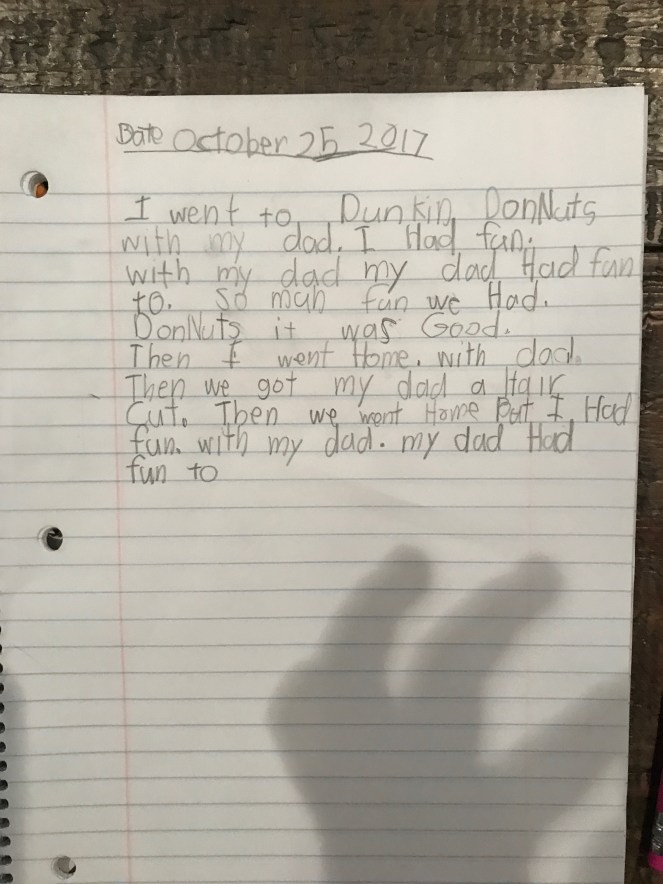 Date October 25 2017
I went to Dunkin DonNuts
with my dad. I Had fun.
with my dad my dad Had fun
to. So muh fun we Had.
DonNuts it was Good.
Then I went Home. with dad.
Then we got my dad a Hair
Cut. Then we went Home But I Had
fun. with my dad. my dad Had
fun to